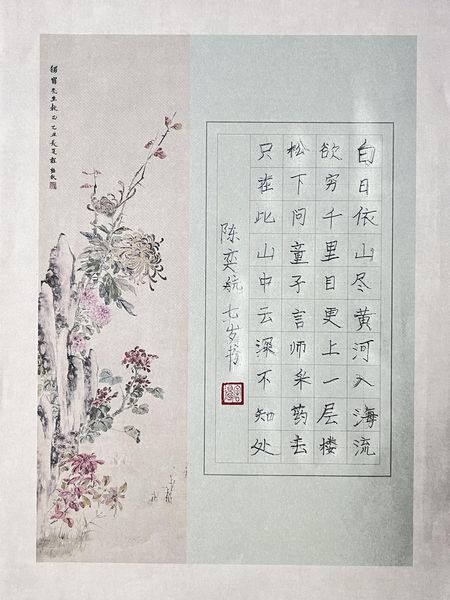 白日依山尽黄河入海流
欲穷千里目更上一层楼
松下问童子言师采药去
只在此山中云深不知处
陈奕航七岁书